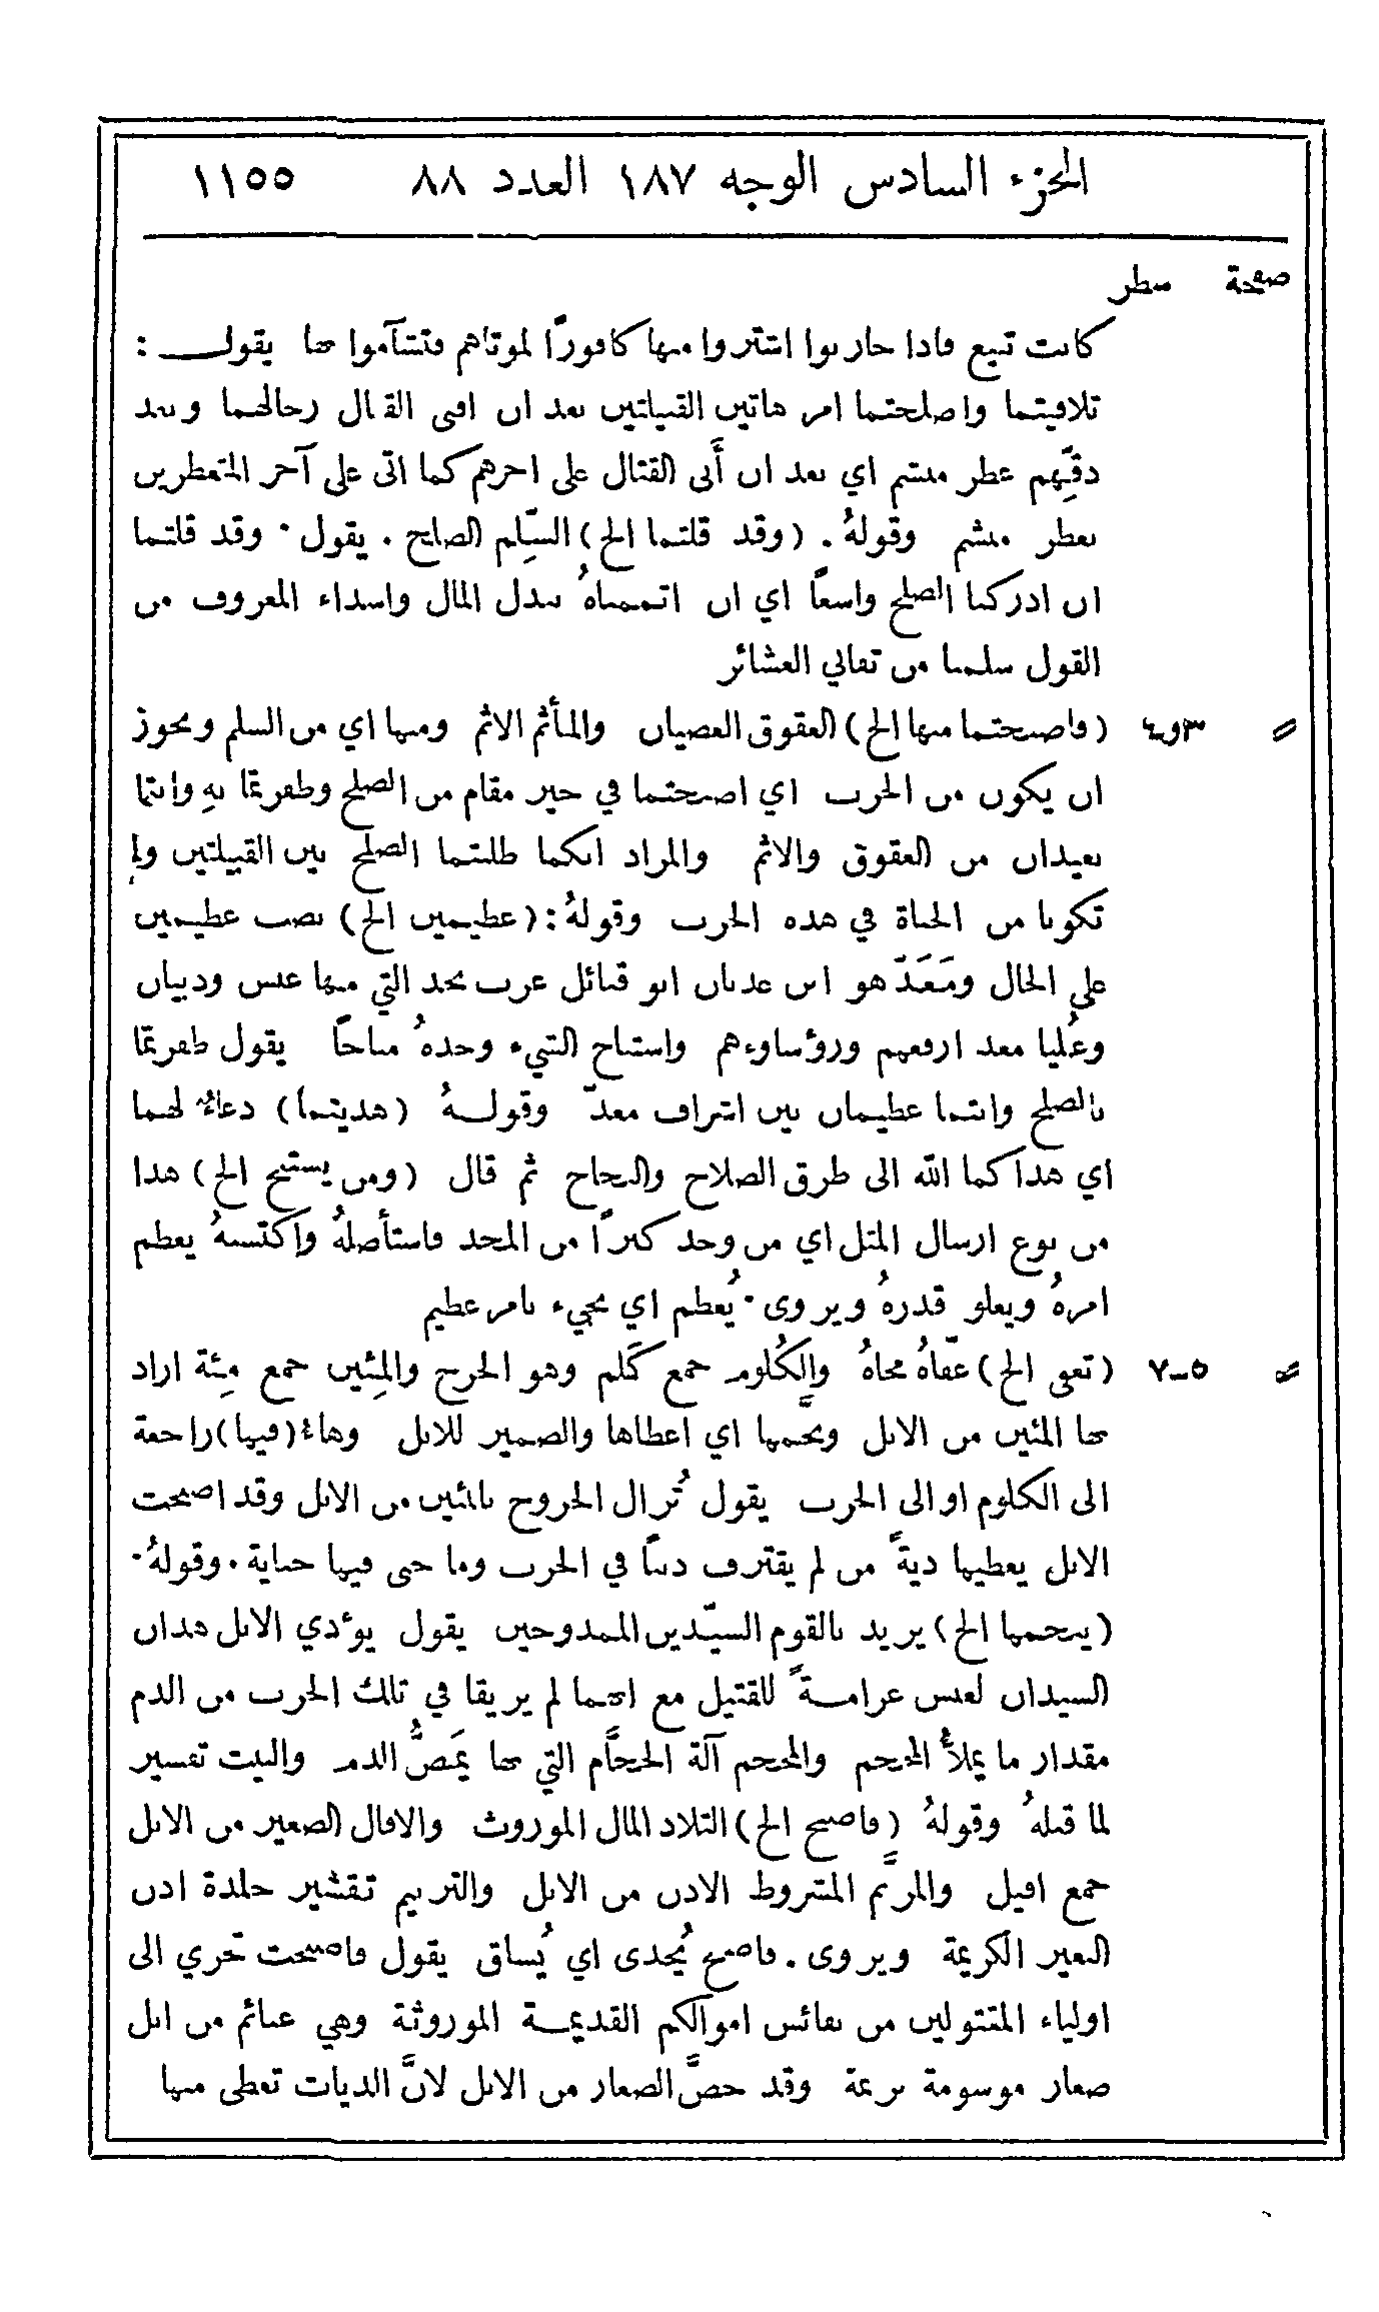 الجزء السادس الوجه ١٨٧ العدد ٨٨ ١١٥٥
صفحة سطر
كانت تبيع فاذا حاربوا اشتروا منها كافورًا لموتاهم فتشآموا بها يقول :
تلافيتما واصلحتما امر هاتين القبيلتين بعد ان افنى القتال رجالهما وبعد
دقِّهم عطر منشم اي بعد ان أَتى القتال على اخرهم كما اتى على آخر المتعطرين
بعطر منشم وقولهُ . (وقد قلتما الخ) السِّلم الصلح . يقول . وقد قلتما
ان ادركنا الصلح واسعًا اي ان اتممناهُ ببذل المال واسداء المعروف من
القول سلمنا من تفاني العشائر
= ٣و٤ (فاصبحتما منها الخ) العقوق العصيان والمأثم الاثم ومنها اي من السلم ويجوز
ان يكون من الحرب اي اصبحتما في خير مقام من الصلح وظفرتما بهِ وانتما
بعيدان من العقوق والاثم والمراد انكما طلبتما الصلح بين القبيلتين ولم
تكونا من الجناة في هذه الحرب وقولهُ: (عظيمين الخ) نصب عظيمين
على الحال ومَعَدّ هو ابن عدنان ابو قبائل عرب نجد التي منها عبس وذبيان
وعُليا معد ارفعهم ورؤساوءهم واستباح الشيء وجدهُ مباحًا يقول ظفرتما
بالصلح وانتما عظيمان بين اشراف معدّ وقولهُ (هديتما) دعاءٌ لهما
اي هداكما الله الى طرق الصلاح والنجاح ثم قال (ومن يستبح الخ) هذا
من نوع ارسال المثل اي من وجد كنزًا من المجد فاستأصلهُ واكتسبهُ يعظم
امرهُ ويعلو قدرهُ ويروى . يُعظم اي يجيء بامر عظيم
= ٥-٧ (تعفى الخ) عفّاهُ محاهُ والكُلوم جمع كَلم وهو الجرح والمِئين جمع مِئة اراد
بها المئين من الابل وينجّمها اي اعطاها والضمير للابل وهاءُ (فيها) راجعة
الى الكلوم او الى الحرب يقول تُزال الجروح بالمئين من الابل وقد اصبحت
الابل يعطيها ديةً من لم يقترف ذنبًا في الحرب وما جنى فيها جناية . وقولهُ .
(ينجمها الخ) يريد بالقوم السيّدين الممدوحين يقول يوءدي الابل هذان
السيدان لعبس غرامةً للقتيل مع انهما لم يريقا في تلك الحرب من الدم
مقدار ما يملأُ المحجم والمحجم آلة الحجَّام التي بها يَمَصُّ الدم والبيت تفسير
لما قبلهُ وقولهُ (فاصبح الخ) التلاد المال الموروث والافال الصغير من الابل
جمع افيل والمزنَّم المشروط الاذن من الابل والتزنيم تقشير جلدة اذن
البعير الكريمة ويروى . فاصبح يُحدى اي يُساق يقول فاصبحت تجري الى
اولياء المقتولين من نفائس اموالكم القديمة الموروثة وهي غنائم من ابل
صغار موسومة بزنمة وقد خصَّ الصغار من الابل لانَّ الديات تعطى منها